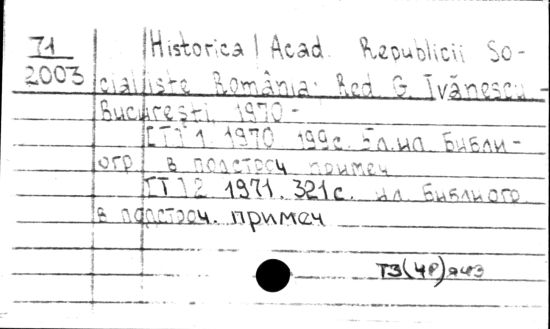 71 Historica / Acad. Republicii So-
2003 cialiste România. Red. G. Ivănescu -
București, 1970 -
[T] 1. 1970. 199с. ил. Библи-
огр. в подстроч. примеч
[T] 2. 1971. 321с. ил. Библиогр.
в подстроч. примеч
Т3(4Р)